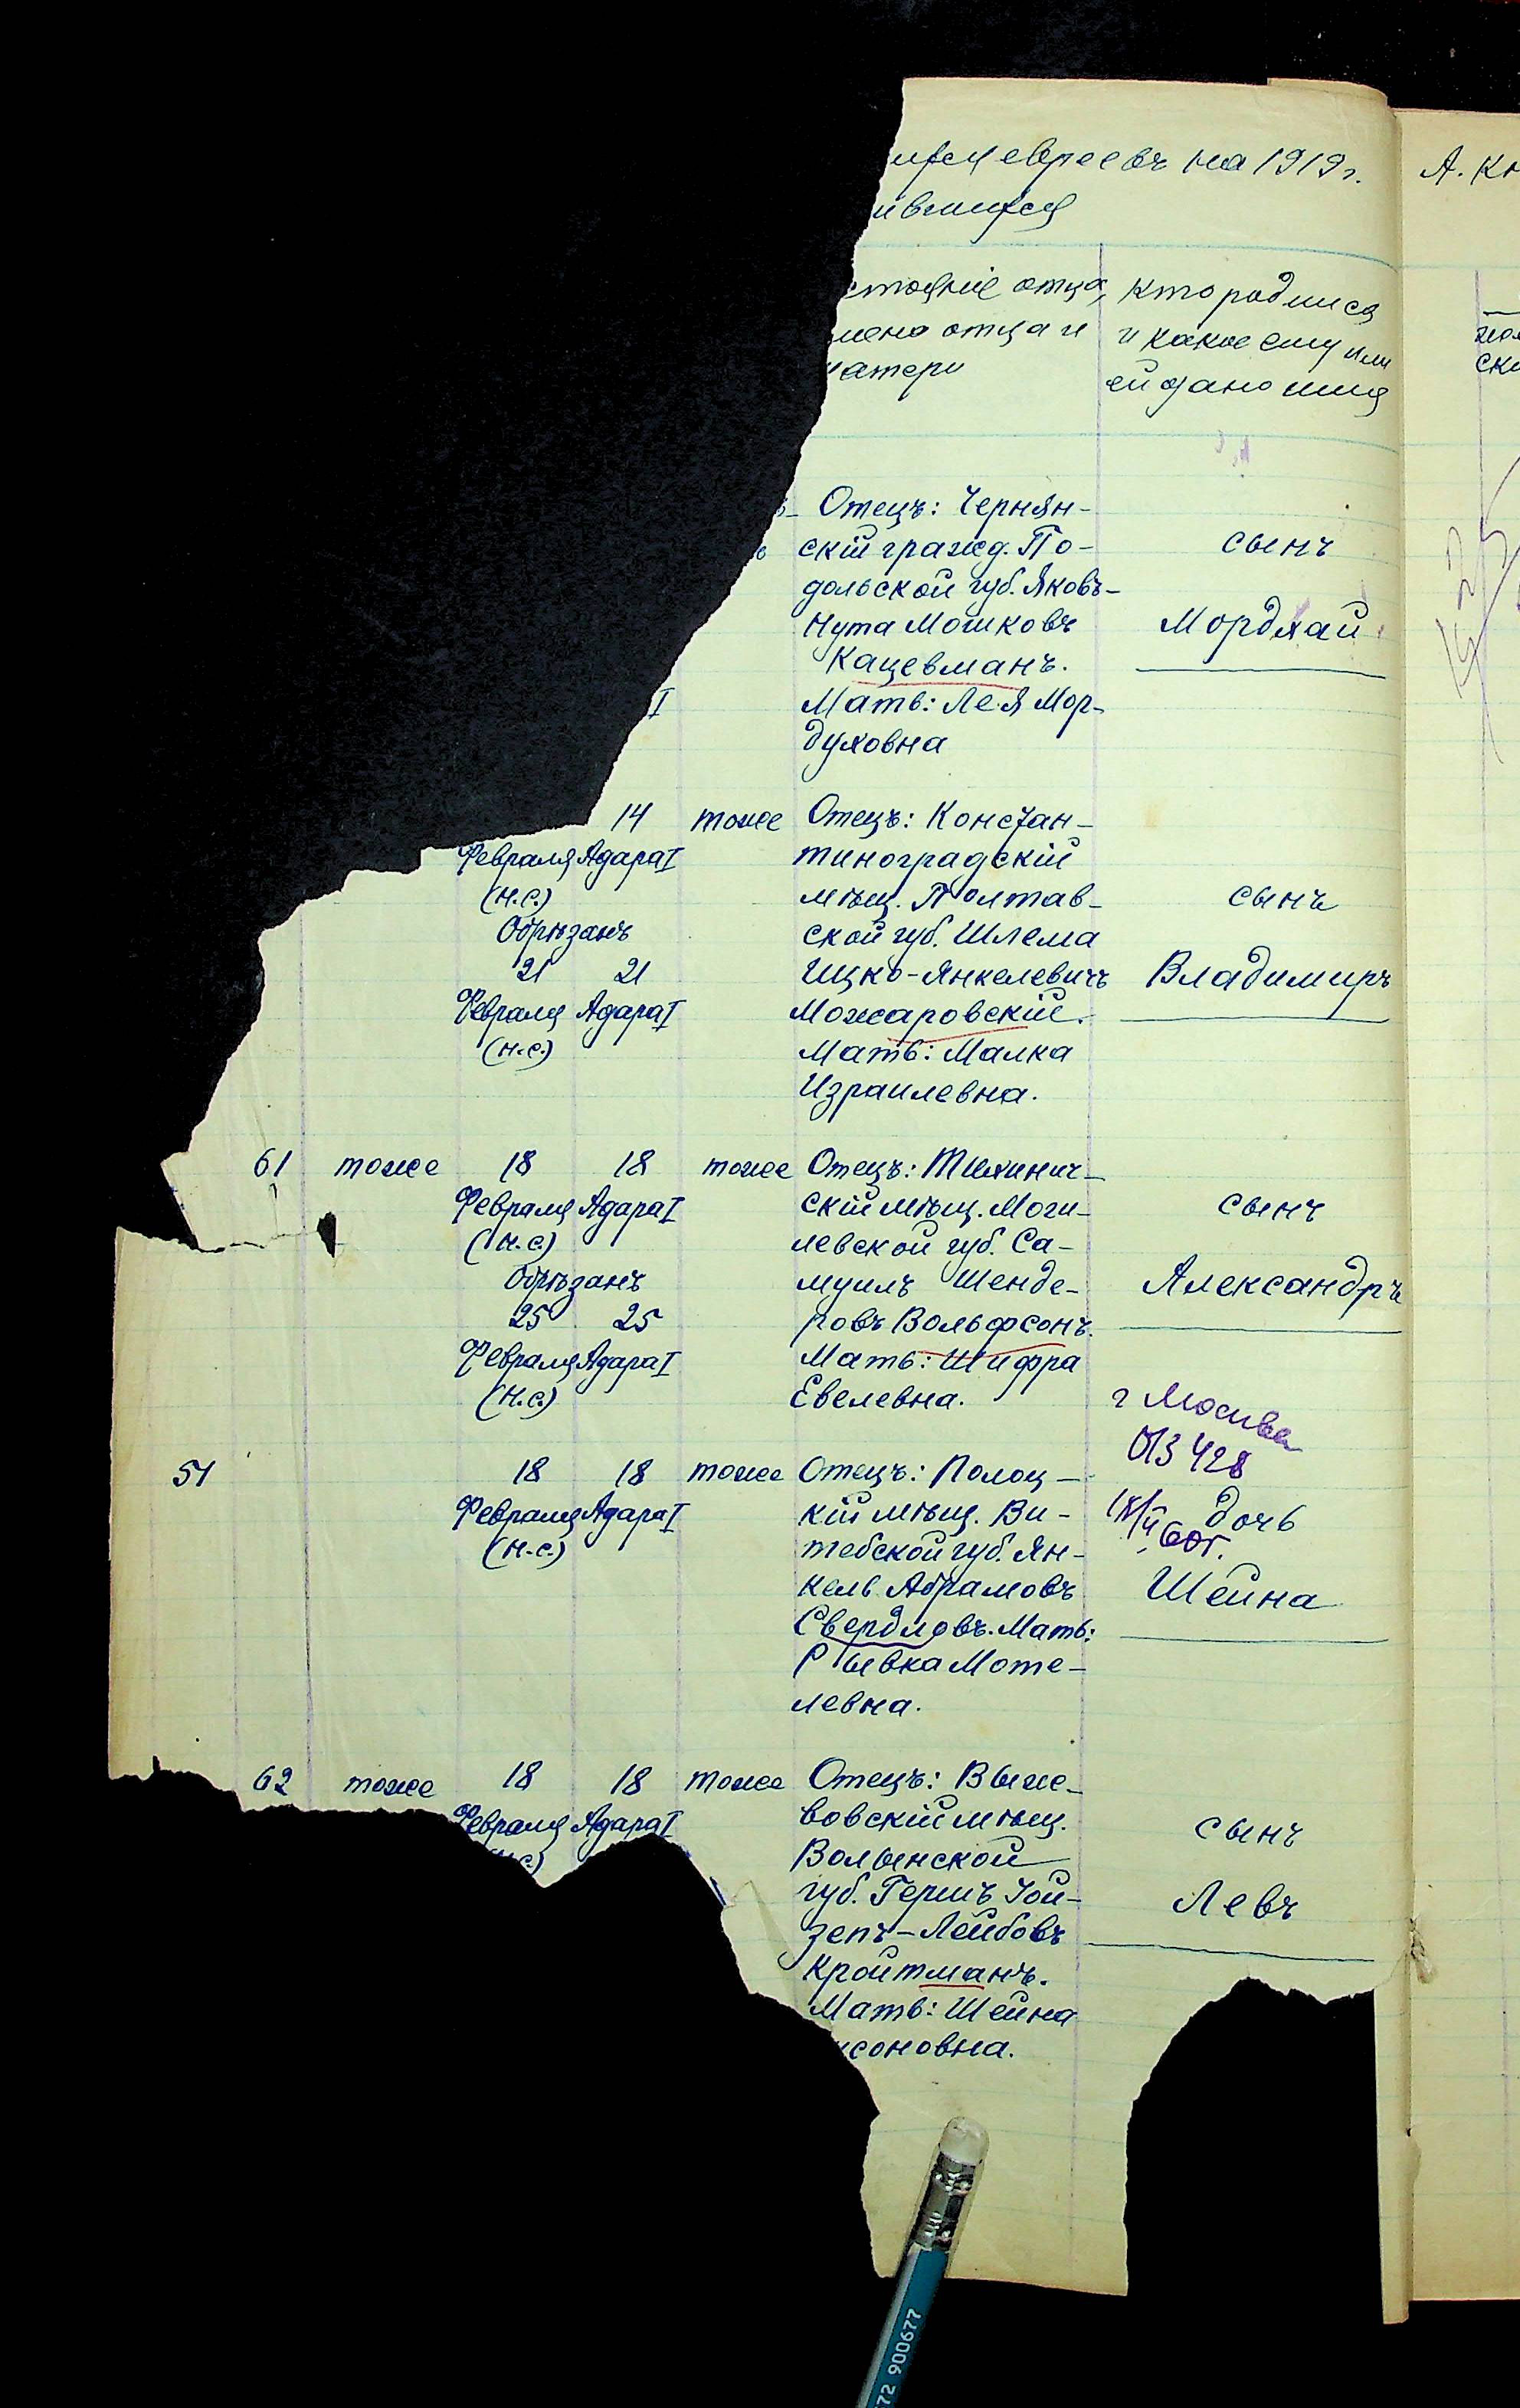 ихся евреевъ на 1919 г.
ившихся
А. Кн
стояніе отца,
мена отца и
матери
Кто родился
и какое ему или
ей дано имя
Отецъ: Чернян-
скій гражд. По-
дольской губ. Яковъ-
Нута Мошковъ
Кацевманъ.
Мать: Лея Мор-
духовна
I
сынъ
Мордхай
14 тоже
Февраля Адара I
(н.с.)
Обрѣзанъ
21 21
Февраля Адара I
(н.с.)
Отецъ: Констан-
тиноградскій
мѣщ. Полтав-
ской губ. Шлема
Ицко-Янкелевичъ
Можаровскій.
Мать: Малка
Израилевна.
сынъ
Владимиръ
61 тоже 18 18 тоже
Февраля Адара I
(н.с.)
Обрѣзанъ
25 25
Февраля Адара I
(н.с.)
Отецъ: Тихинич-
скій мѣщ. Моги-
левской губ. Са-
муилъ Шенде-
ровъ Вольфсонъ.
Мать: Шифра
Евелевна.
сынъ
Александръ
г Москва
51 18 18 тоже
Февраля Адара I
(н.с.)
Отецъ: Полоц-
кій мѣщ. Ви-
тебской губ. Ян-
кель Абрамовъ
Свердловъ. Мать:
Рывка Моте-
левна.
дочь
60г.
Шейна
62 тоже 18 18 тоже
Февраля Адара I
н.с.)
Отецъ: Выже-
вовскій мѣщ.
Волынской
губ. Гершъ Іой-
зепъ-Лейбовъ
Кройтманъ.
Мать: Шейна
соновна.
сынъ
Левъ
72 900677